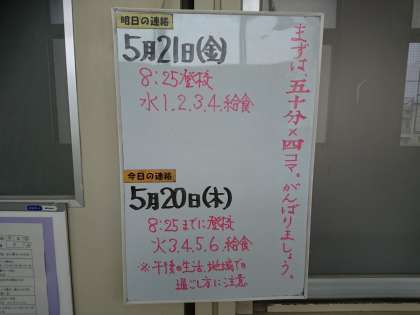 明日の連絡
5月21日(金)
8:25登校
水1.2.3.4.給食
今日の連絡
5月20日(木)
8:25までに登校
火3.4.5.6 給食
※午後の生活、地域での
過ごし方に注意
まずは、五十分×四コマ。がんばりましょう。